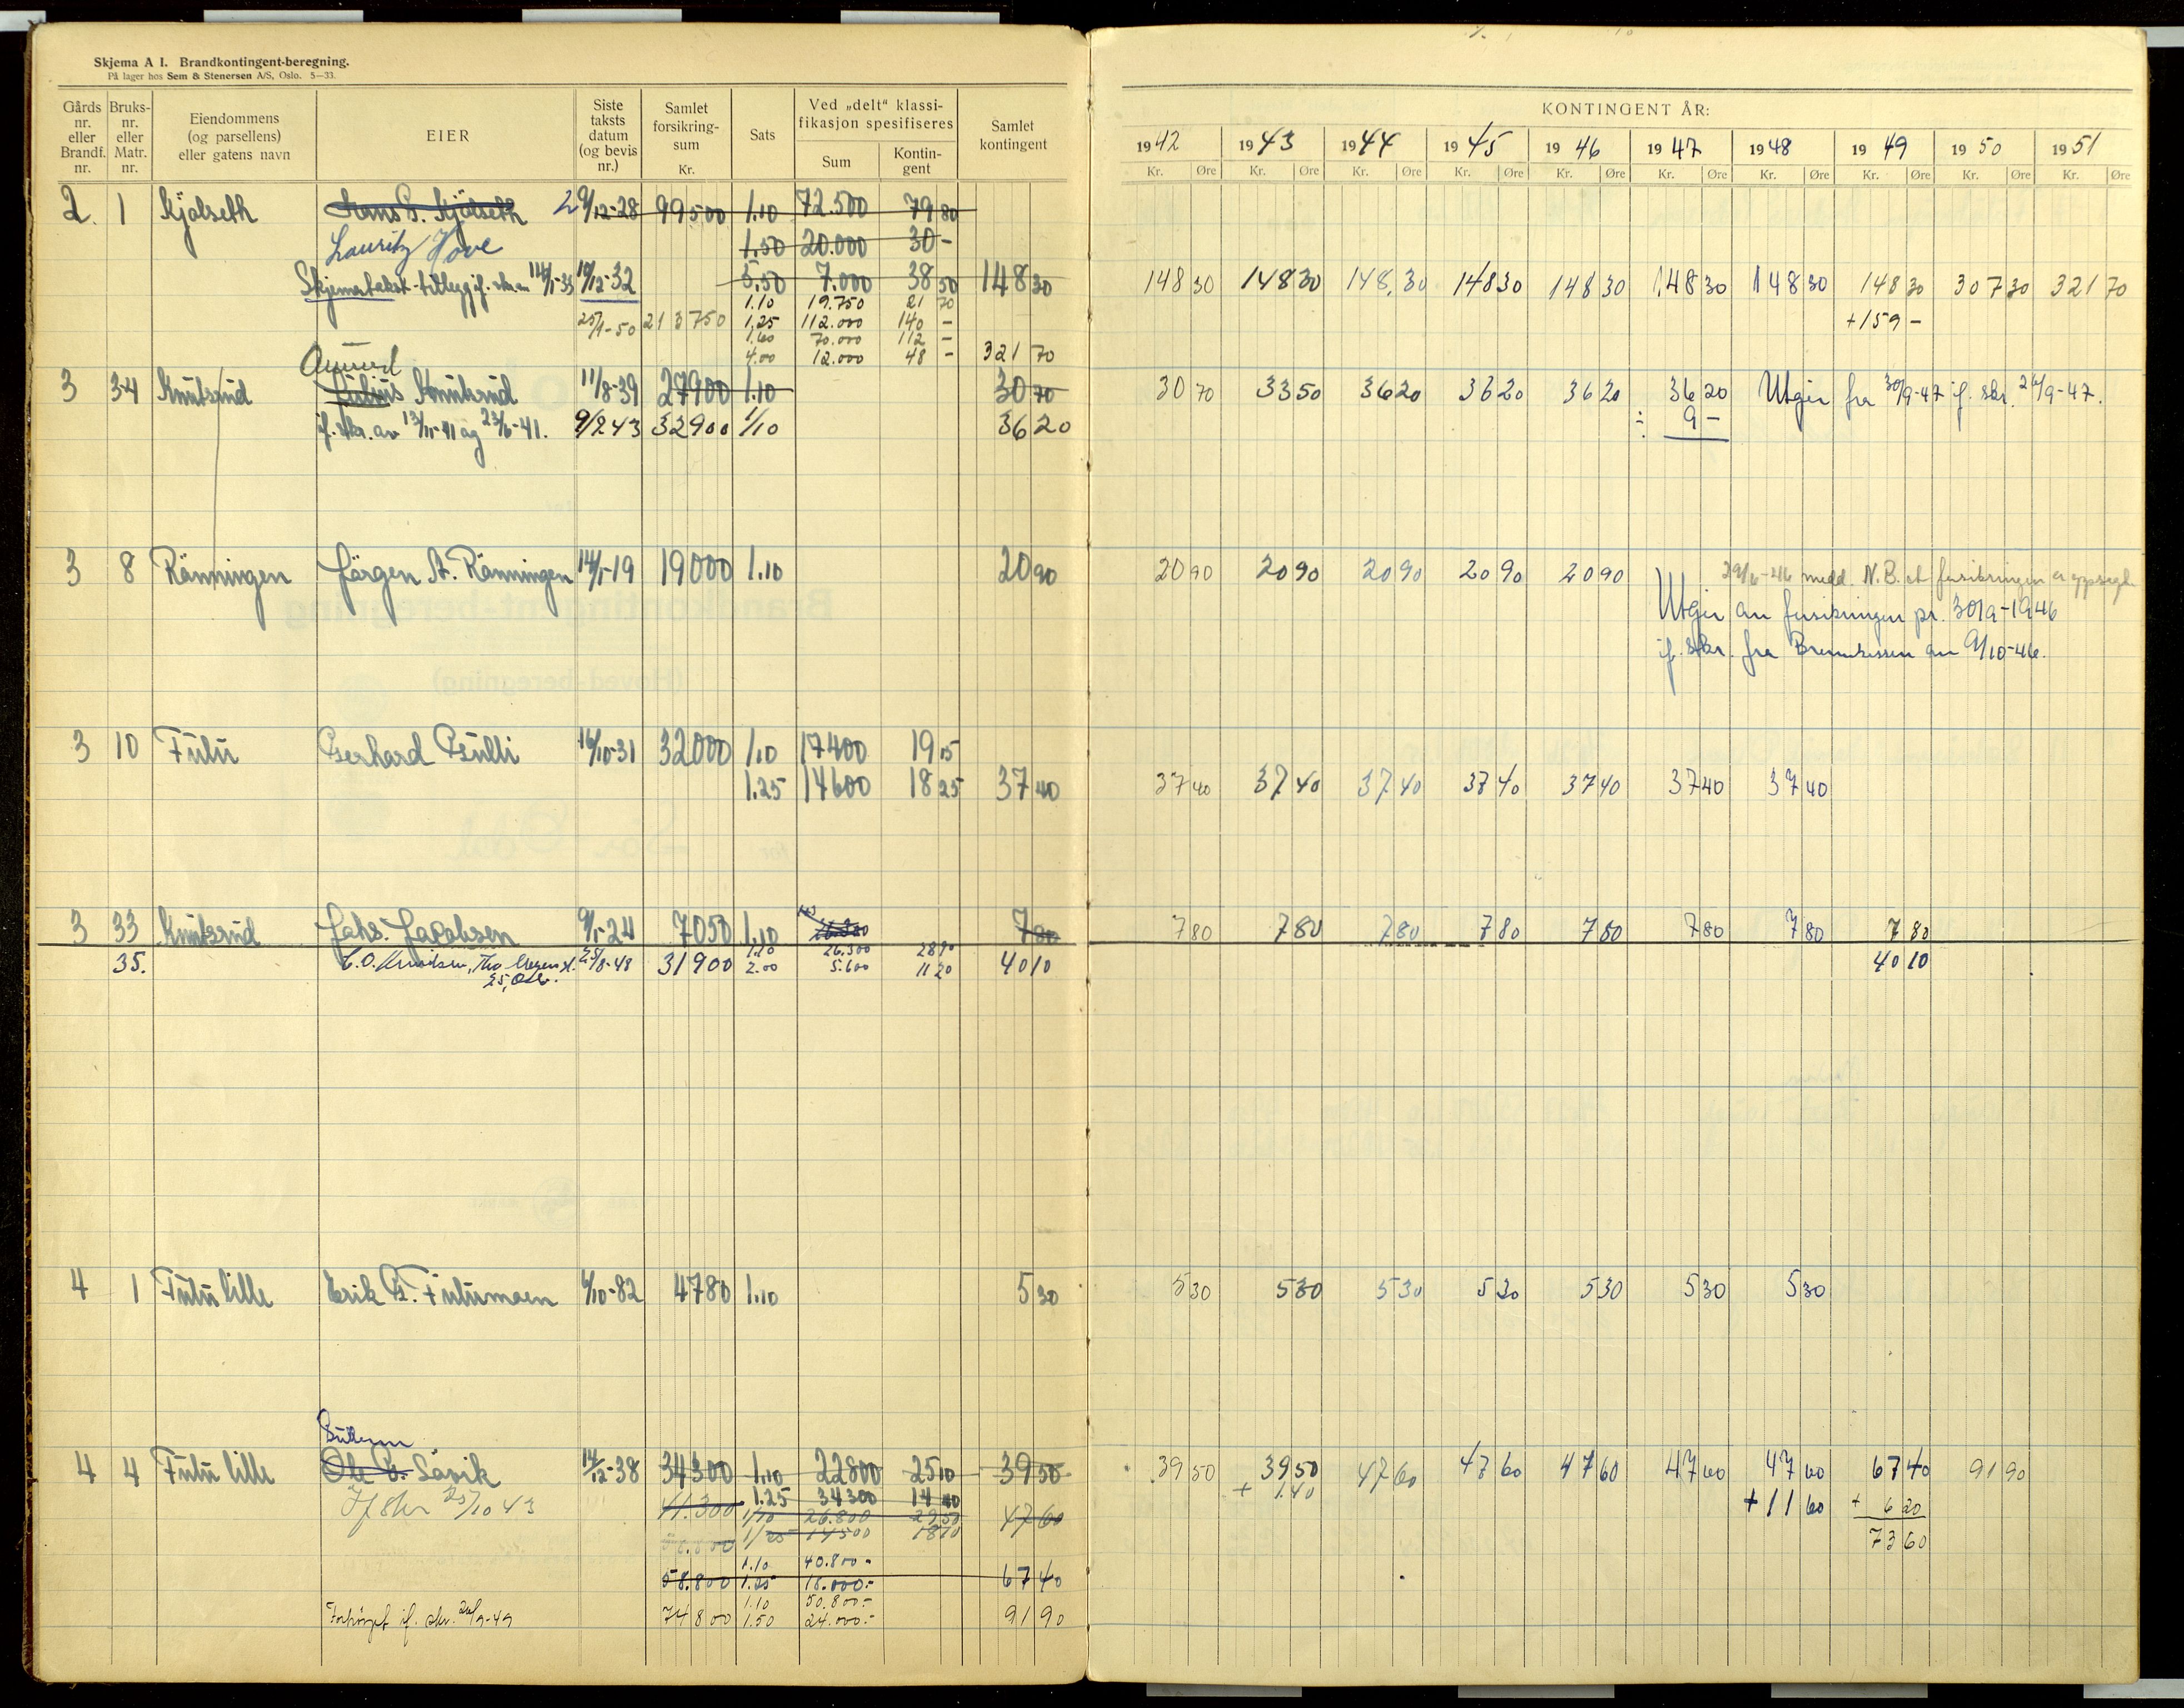 Skjema A I. Brandkontingent-beregning.
På lager hos Sem & Stenersen A/S, Oslo. 5—33.
Gårds nr. eller Brandf. nr.
Bruks- nr. eller Matr. nr.
Eiendommens (og parsellens) eller gatens navn
EIER
Siste taksts datum (og bevis nr.)
Samlet forsikring- sum Kr.
Sats
Ved „delt“ klassi- fikasjon spesifiseres
Sum
Kontin- gent
Samlet kontingent
KONTINGENT ÅR:
1942 1943 1944 1945 1946 1947 1948 1949 1950 1951
Kr. Øre Kr. Øre Kr. Øre Kr. Øre Kr. Øre Kr. Øre Kr. Øre Kr. Øre Kr. Øre Kr. Øre
2. 1 Kjølseth Hans P. Kjølseth 29/12-28 99500 1.10 72.500 79 80
Lauritz Hove 1.50 20.000 30 -
Skjema takst-tillegg jf. skr. av 14/1-33 10/12-32 5.50 7.000 38 50 148 30 148 30 148 30 148,30 148 30 148 30 148 30 148 30 148 30 307 30 321 70
1.10 19.750 21 70
25/1-50 213750 1,25 112.000 140 - +159 -
1,60 70.000 112 -
4.00 12.000 48 - 321 70
Amund
3 34 Knutsrud Julius Knutsrud 11/8-39 27900 1.10 30 70 30 70 33 50 36 20 36 20 36 20 36 20 Utgår fra 30/9-47 jf. skr. 26/9-47.
jf. skr. av 13/11-41 og 23/6-41. 9/2 43 32900 1/10 36 20 ÷ 9 -
3 8 Rånningen Jørgen A. Rånningen 14/1-19 19000 1.10 20 90 20 90 20 90 20 90 20 90 20 90 29/6-46 medd. N.B. at forsikringen er oppsagt
Utgår av forsikringen pr. 30/9-1946
jf. skr. fra Brannkassen av 9/10-46.
3 10 Fulu Gerhard Gulli 16/10-31 32000 1.10 17400 19 15
1.25 14600 18 25 37 40 37 40 37 40 37 40 37 40 37 40 37 40 37 40
3 33 Knutsrud Johs. Jacobsen 9/1-24 7050 1.10 7 80 7 80 7 80 7 80 7 80 7 80 7 80 7 80 7 80
35. C.O. Knudsen, Tho. Meyers gt. 25/8-48 31900 1.10 26.300 28 90
25, Oslo. 2.00 5.600 11 20 40 10 40 10
4 1 Fulu lille Erik G. Fulumoen 6/10-82 4780 1.10 5 30 5 30 5 30 5 30 5 30 5 30 5 30 5 30
4 4 Fulu lille Ole G. Såvik 14/12-38 34300 1.10 22800 25 10 39 50 39 50 39 50 47 60 47 60 47 60 47 60 47 60 67 40 91 90
Jf skr 25/10 43 41.300 1.25 34300 14 40 + 1.40 +11 60 + 6 20
1/10 26.800 29 50 47 60 73 60
1/25 14500 18 10
1.10 40.800 -
58.800 1.25 18.000.- 67 40
1.10 50.800.-
Forhøyet jf. skr. 26/9-49 74800 1.50 24.000.- 91 90